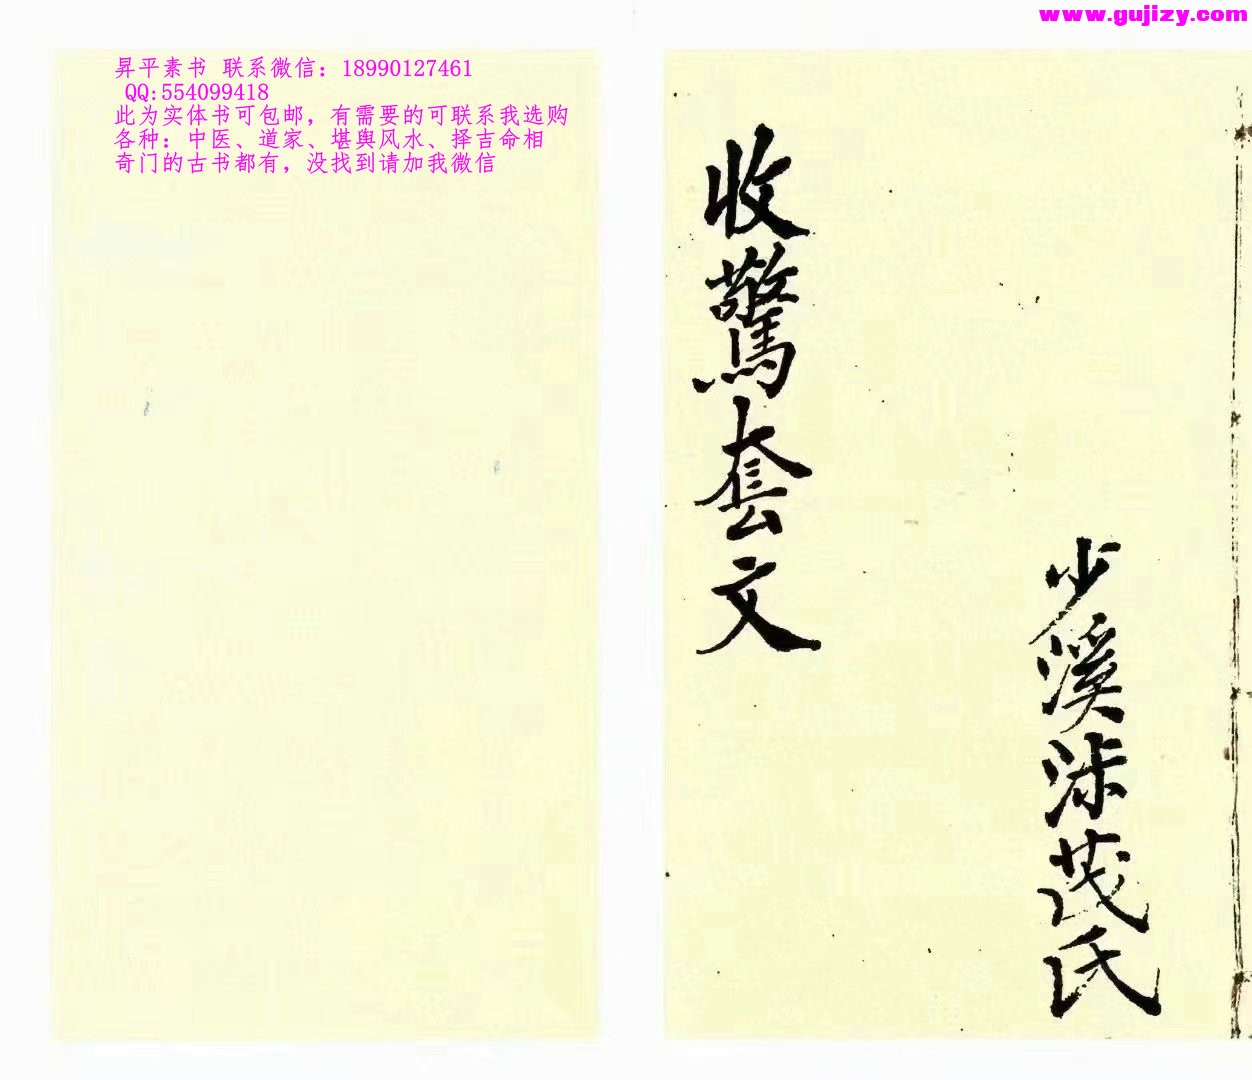 www.gujizy.com
昇平素书 联系微信：18990127461
QQ:554099418
此为实体书可包邮，有需要的可联系我选购
各种：中医、道家、堪舆风水、择吉命相
奇门的古书都有，没找到请加我微信
少溪沭茂氏
收驚套文